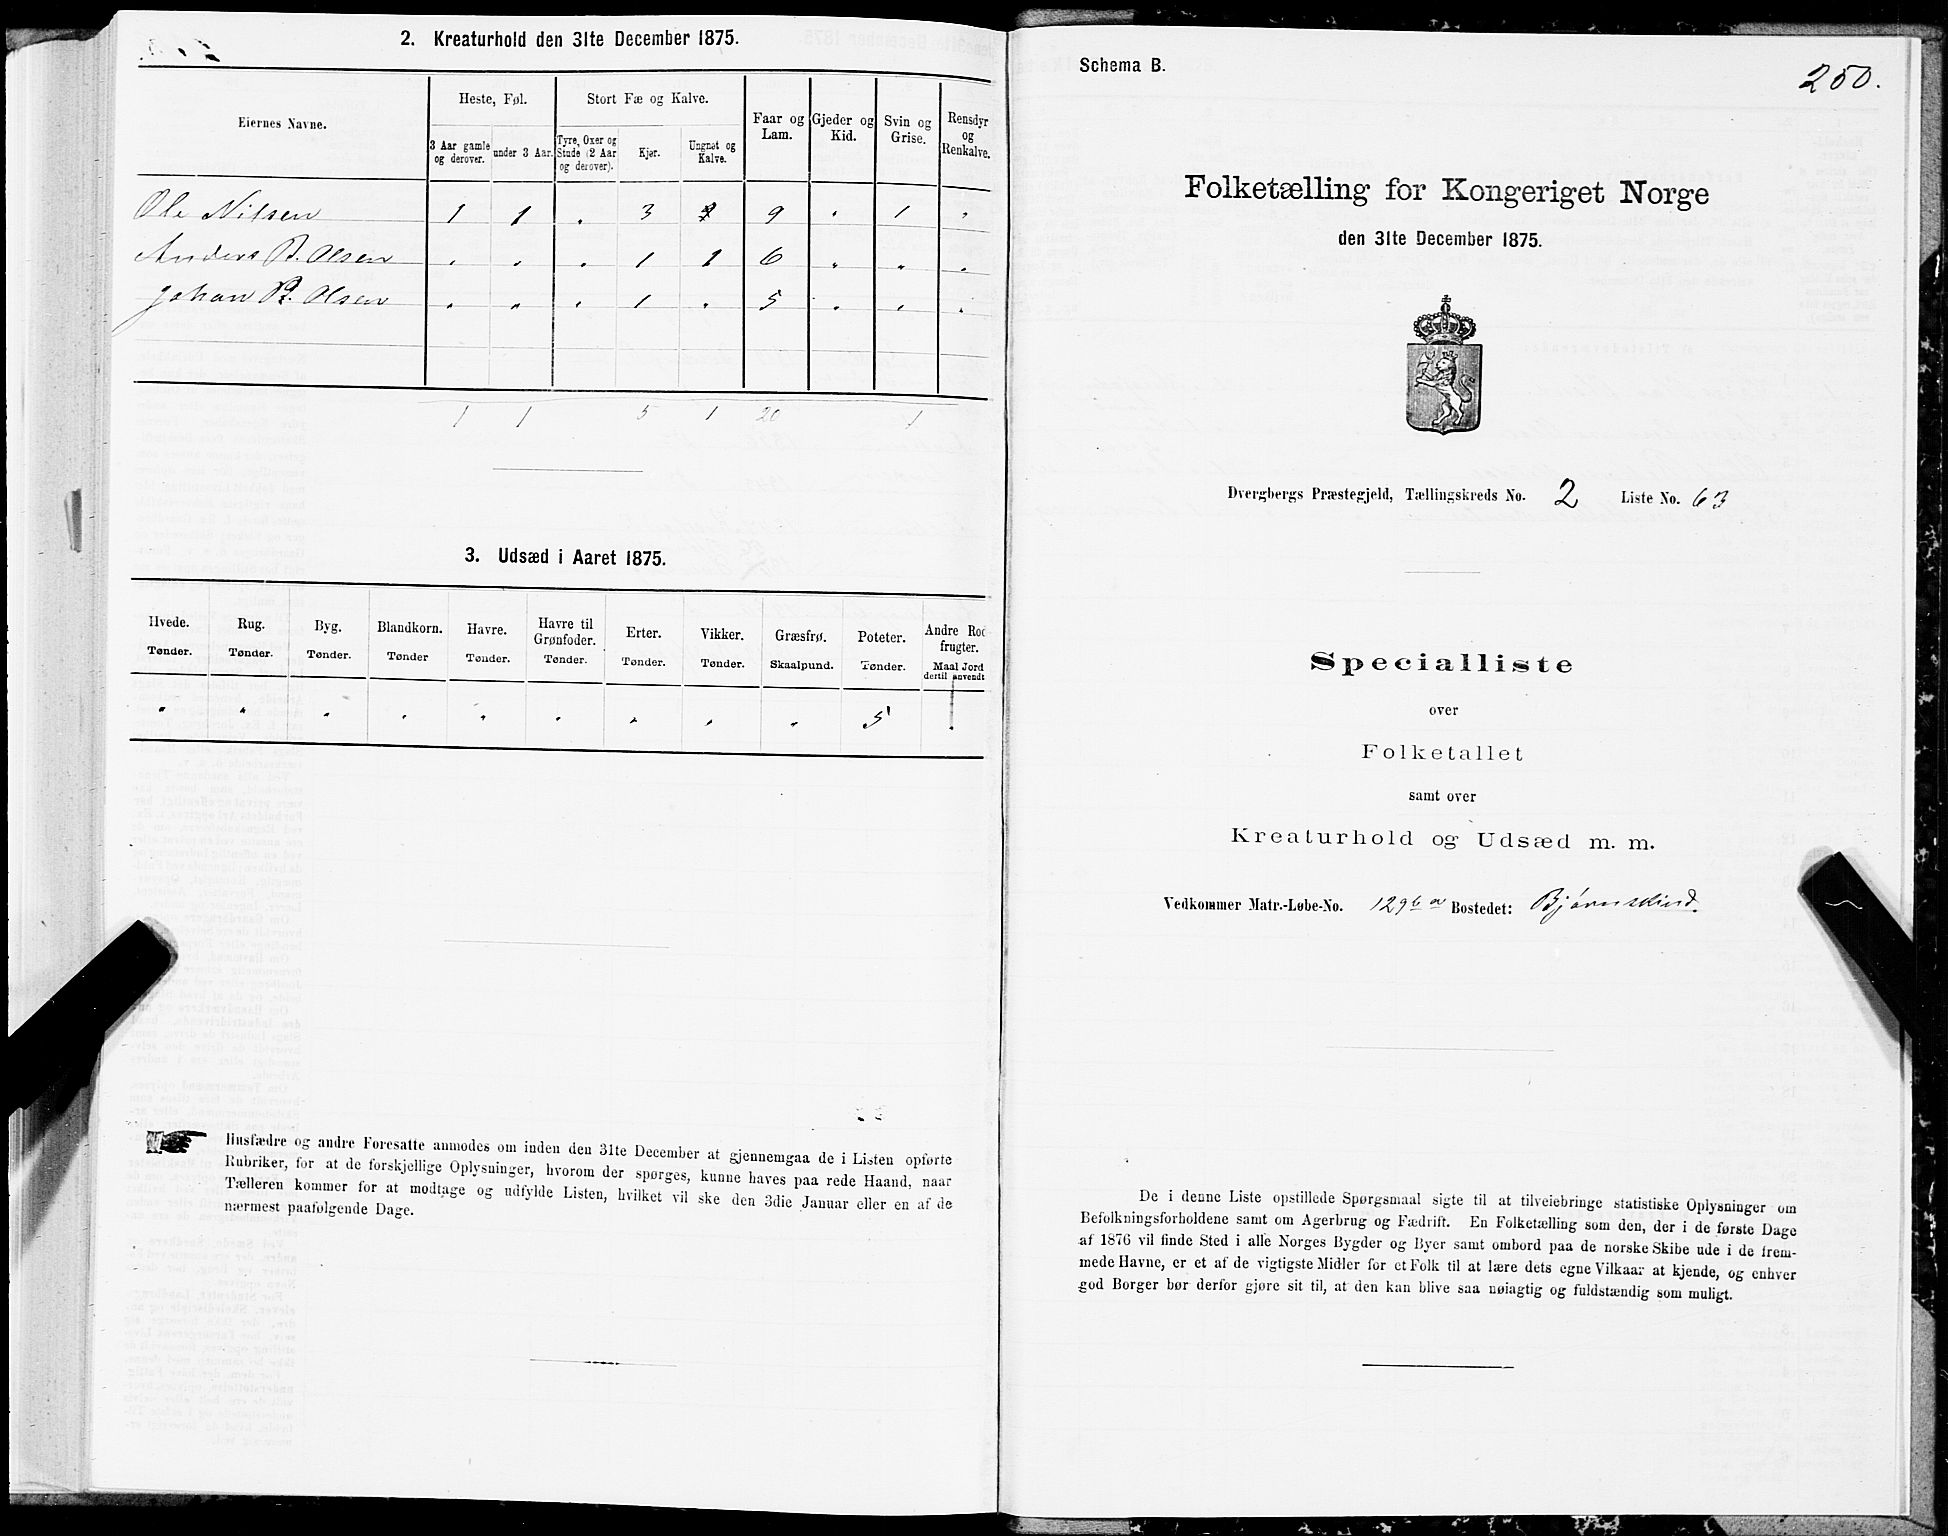 2. Kreaturhold den 31te December 1875.
Eiernes Navne.
Heste, Føl.
Stort Fæ og Kalve.
Faar og Lam.
Gjeder og Kid.
Svin og Grise.
Rensdyr og Renkalve.
3 Aar gamle og derover.
under 3 Aar.
Tyre, Oxer og Stude (2 Aar og derover).
Kjør.
Ungnøt og Kalve.
Ole Nilsen 1 1 . 3 9 . 1 .
Anders B. Olsen . . . 1 1 6 . . .
Johan P. Olsen . . . 1 . 5 . . .
1 1 5 1 20 1
3. Udsæd i Aaret 1875.
Hvede. Rug. Byg. Blandkorn. Havre. Havre til Grønfoder. Erter. Vikker. Græsfrø. Poteter. Andre Rodfrugter.
Tønder. Tønder. Tønder. Tønder Tønder. Tønder. Tønder. Tønder. Skaalpund. Tønder. Maal Jord dertil anvendt
" " " " " " " " " 5 "
Husfædre og andre Foresatte anmodes om inden den 31te December at gjennemgaa de i Listen opførte
Rubriker, for at de forskjellige Oplysninger, hvorom der spørges, kunne haves paa rede Haand, naar
Tælleren kommer for at modtage og udfylde Listen, hvilket vil ske den 3die Januar eller en af de
nærmest paafølgende Dage.
Schema B.
250.
Folketælling for Kongeriget Norge
den 31te December 1875.
Dvergbergs Præstegjeld, Tællingskreds No. 2 Liste No. 63
Specialliste
over
Folketallet
samt over
Kreaturhold og Udsæd m. m.
Vedkommer Matr.-Løbe-No. 129 b a Bostedet: Bjørnskind.
De i denne Liste opstillede Spørgsmaal sigte til at tilveiebringe statistiske Oplysninger om
Befolkningsforholdene samt om Agerbrug og Fædrift. En Folketælling som den, der i de første Dage
af 1876 vil finde Sted i alle Norges Bygder og Byer samt ombord paa de norske Skibe ude i de frem-
mede Havne, er et af de vigtigste Midler for et Folk til at lære dets egne Vilkaar at kjende, og enhver
god Borger bør derfor gjøre sit til, at den kan blive saa nøiagtig og fuldstændig som muligt.